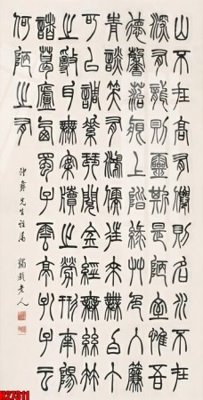 山不在高有僊則名水不在
深有龍則靈斯是陋室惟吾
德馨苔痕上階綠草色入簾
青談笑有鴻儒往來無白丁
可以調素琴閱金經無絲竹
之亂耳無案牘之勞形南陽
諸葛廬西蜀子雲亭孔子云
何陋之有
先生雅屬 老人